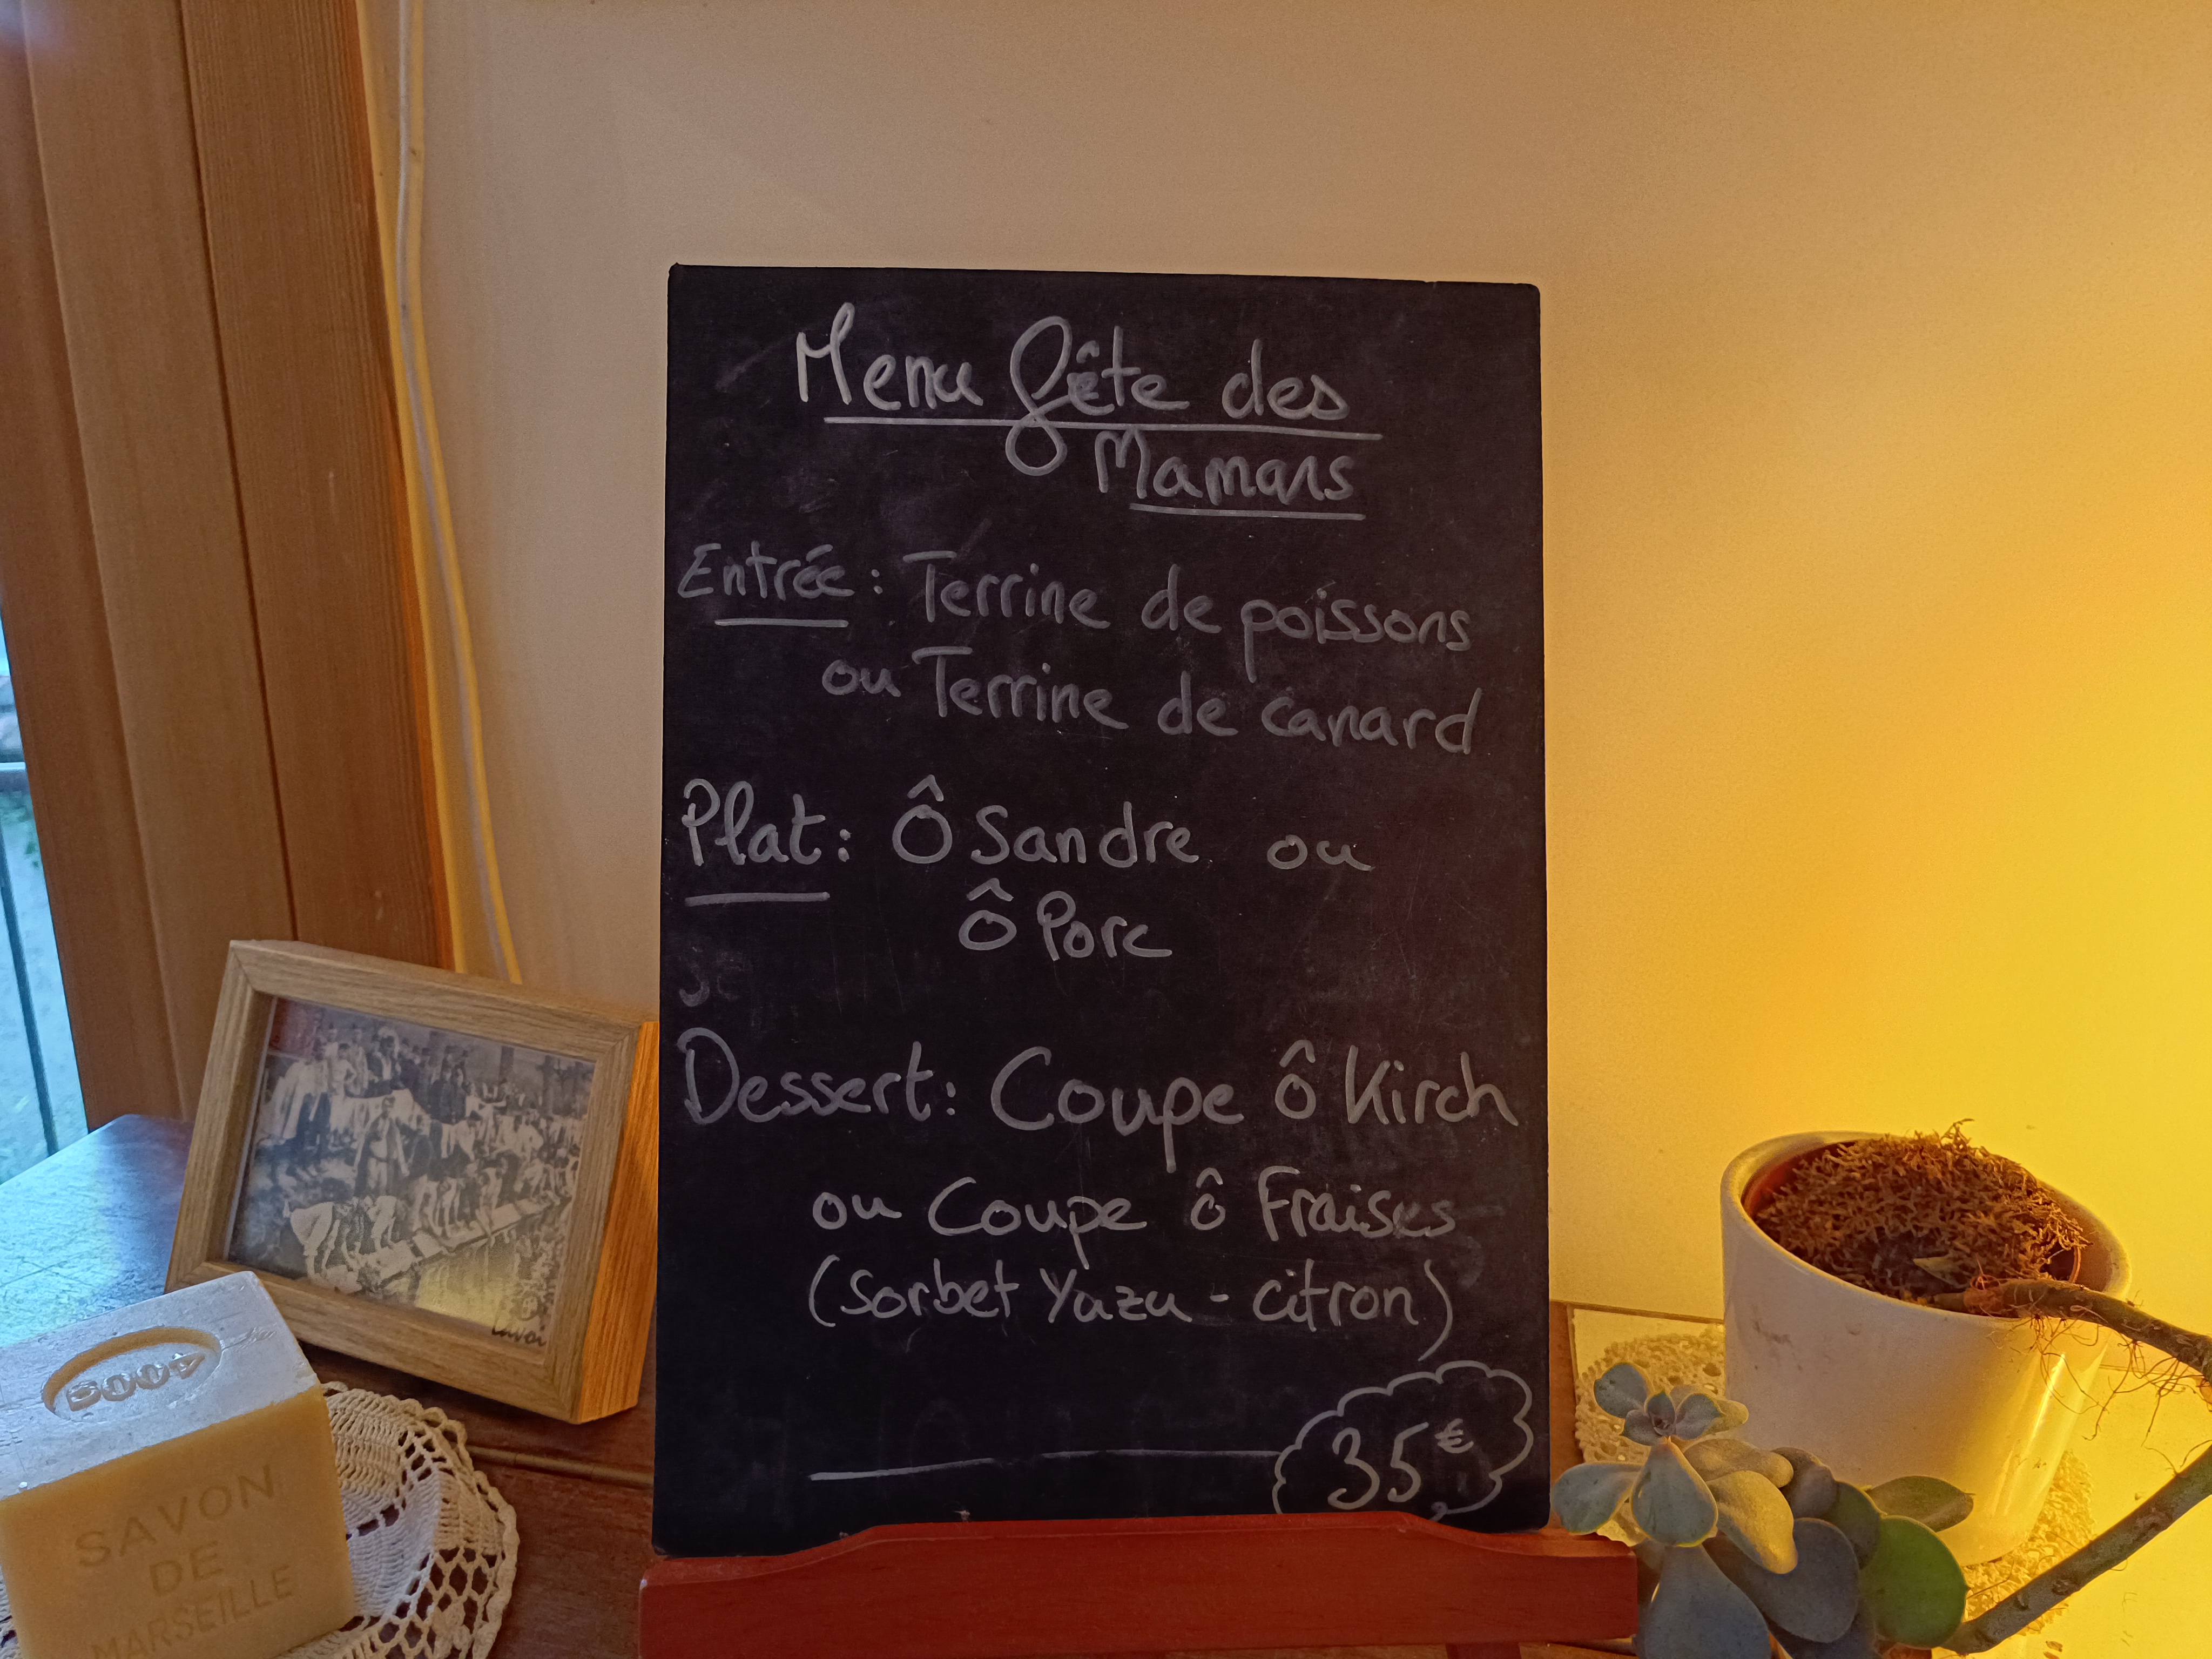 Menu fête des
Mamans
Entrée : Terrine de poissons
ou Terrine de canard
Plat : Ô Sandre ou
Ô Porc
Dessert : Coupe ô Kirch
ou Coupe ô Fraises
(Sorbet Yazu - citron)
35€
SAVON
DE
MARSEILLE